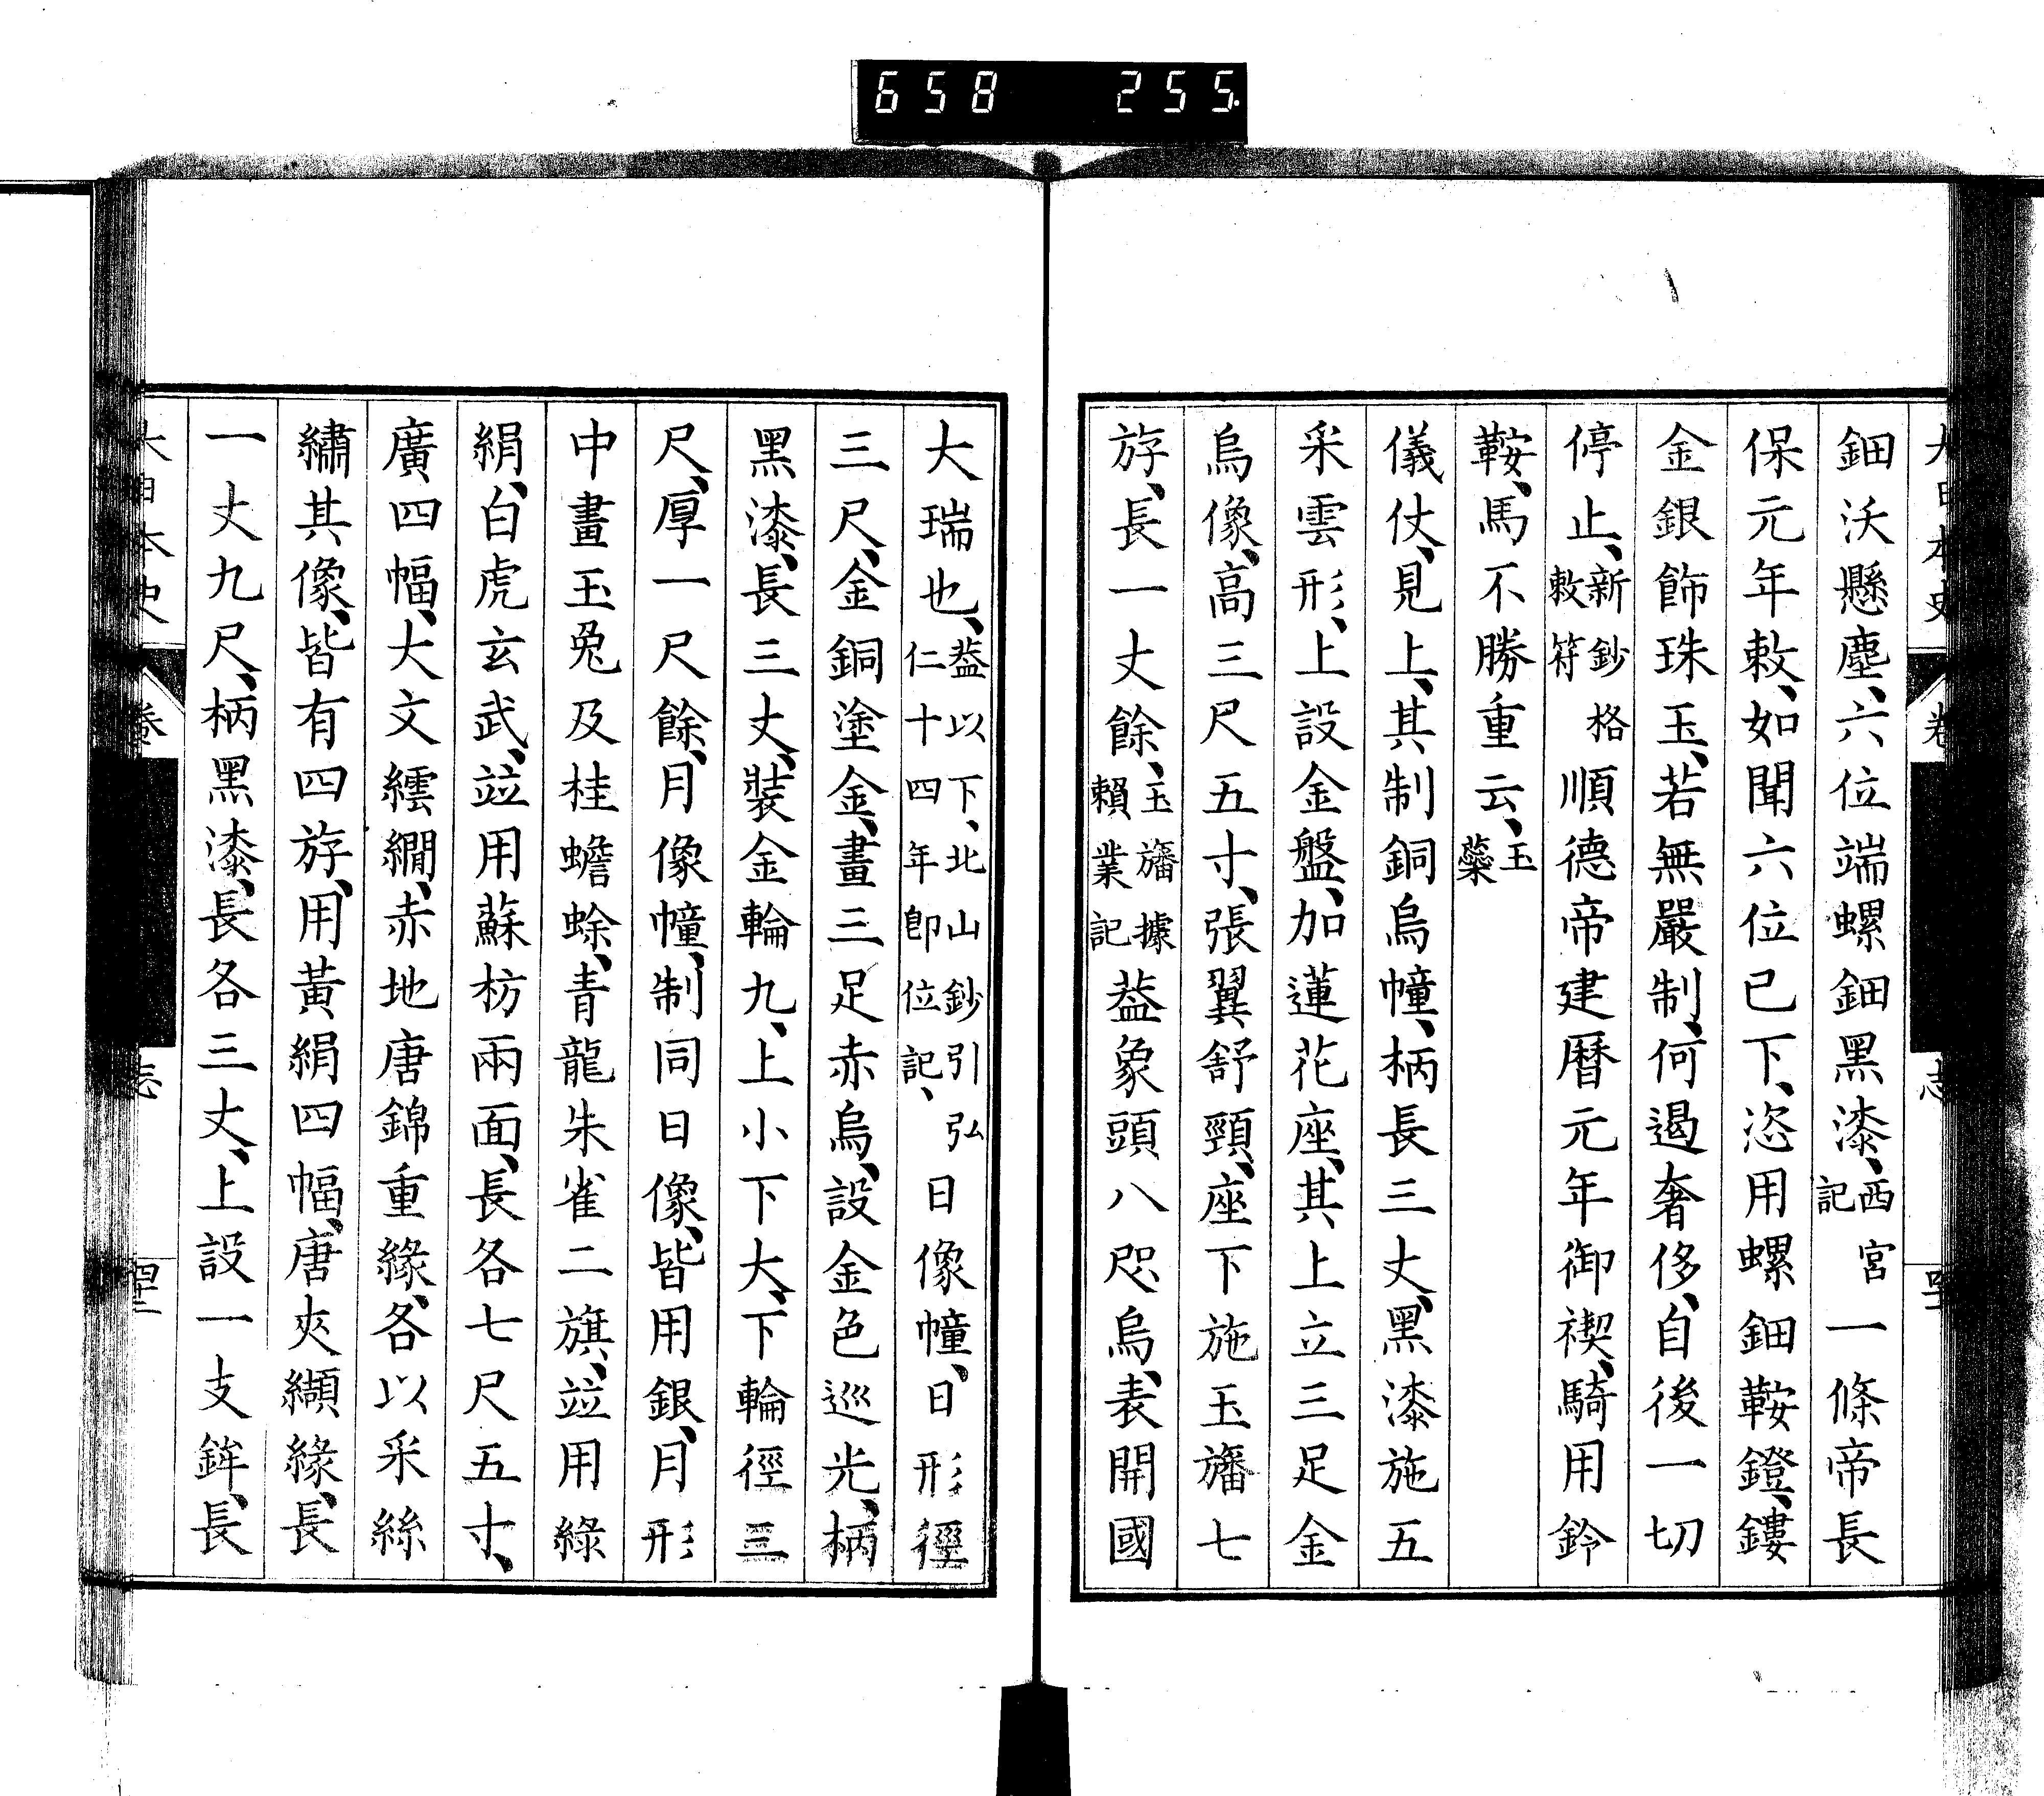 658 255
大日本史 卷 志
鈿沃懸塵、六位端螺鈿黑漆、西宮記一條帝長
保元年敕、如聞六位已下、恣用螺鈿鞍鐙、鏤
金銀飾珠玉、若無嚴制、何遏奢侈、自後一切
停止、新鈔格敕符順德帝建曆元年御禊、騎用鈴
鞍、馬不勝重云、玉蘂
儀仗、見上、其制銅烏幢、柄長三丈、黑漆施五
采雲形、上設金盤、加蓮花座、其上立三足金
烏像、高三尺五寸、張翼舒頸、座下施玉旛七
斿、長一丈餘、玉旛據賴業記葢象頭八咫烏、表開國
大瑞也、葢以下、北山鈔引弘仁十四年卽位記、日像幢、日形徑
三尺、金銅塗金、畫三足赤烏、設金色巡光、柄
黑漆、長三丈、裝金輪九、上小下大、下輪徑三
尺、厚一尺餘、月像幢、制同日像、皆用銀、月形
中畫玉兔及桂蟾蜍、青龍朱雀二旗、竝用綠
絹、白虎玄武、竝用蘇枋兩面、長各七尺五寸、
廣四幅、大文繧繝、赤地唐錦重緣、各以采絲
繡其像、皆有四斿、用黃絹四幅、唐夾纈緣、長
一丈九尺、柄黑漆、長各三丈、上設一支鉾、長
大日本史 卷 志